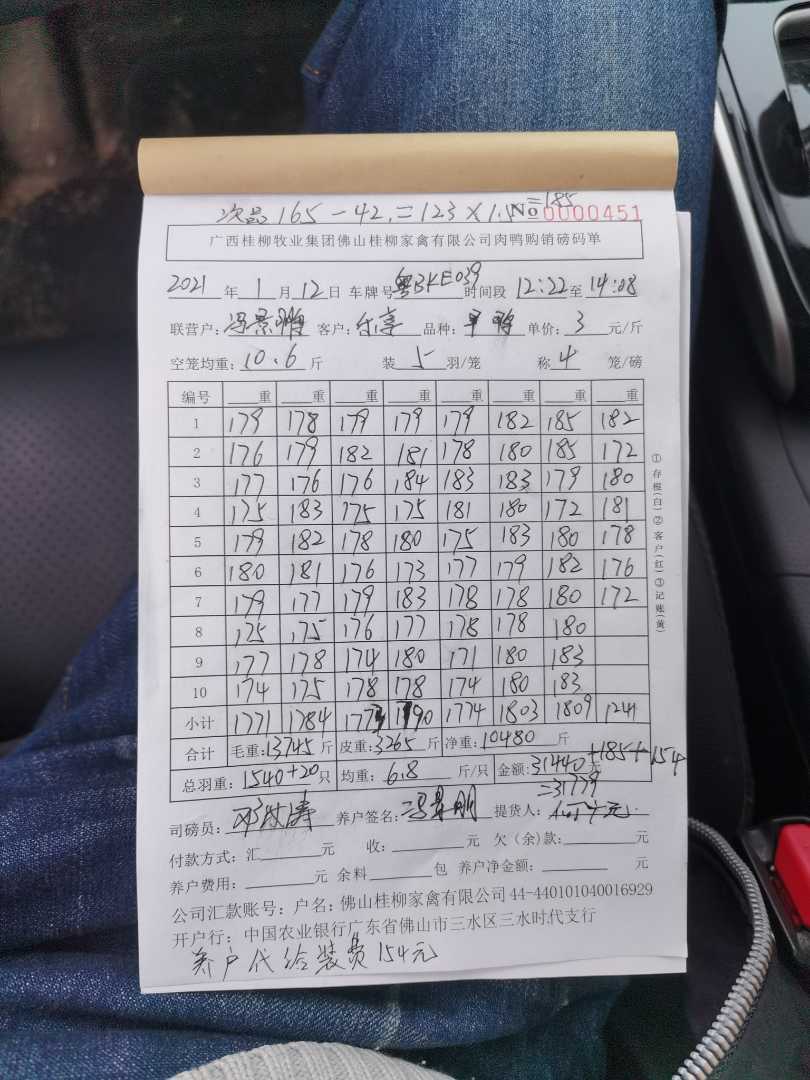 次品 165-42=123×1.5=185
No 0000451
广西桂柳牧业集团佛山桂柳家禽有限公司肉鸭购销磅码单
2021 年 1 月 12 日 车牌号 粤BKE039 时间段 12:22 至 14:08
联营户: 冯景明 客户: 乐享 品种: 单价: 3 元/斤
空笼均重: 10.6 斤 装 5 羽/笼 称 4 笼/磅
编号 重 重 重 重 重 重 重 重
1 179 178 179 179 179 182 185 182
2 176 179 182 181 178 180 185 172
3 177 176 176 184 183 183 179 180
4 175 183 175 175 181 180 172 181
5 179 182 178 180 175 183 180 178
6 180 181 176 173 177 179 182 176
7 179 177 179 183 178 178 180 172
8 175 175 176 177 178 178 180
9 177 178 174 180 171 180 183
10 174 175 178 178 174 180 183
小计 1771 1784 1773 1790 1774 1803 1809 1241
合计 毛重: 13745 斤 皮重: 3265 斤 净重: 10480 斤
总羽重: 1540+20 只 均重: 6.8 斤/只 金额: 31440 元 +185+154
=31779
司磅员: 养户签名: 冯景明 提货人:
付款方式: 汇 元 收: 元 欠(余)款: 元
养户费用: 元 余料 包 养户净金额: 元
公司汇款账号: 户名: 佛山桂柳家禽有限公司 44-440101040016929
开户行: 中国农业银行广东省佛山市三水区三水时代支行
养户代给装费154元
①存根(白)②客户(红)③记账(黄)